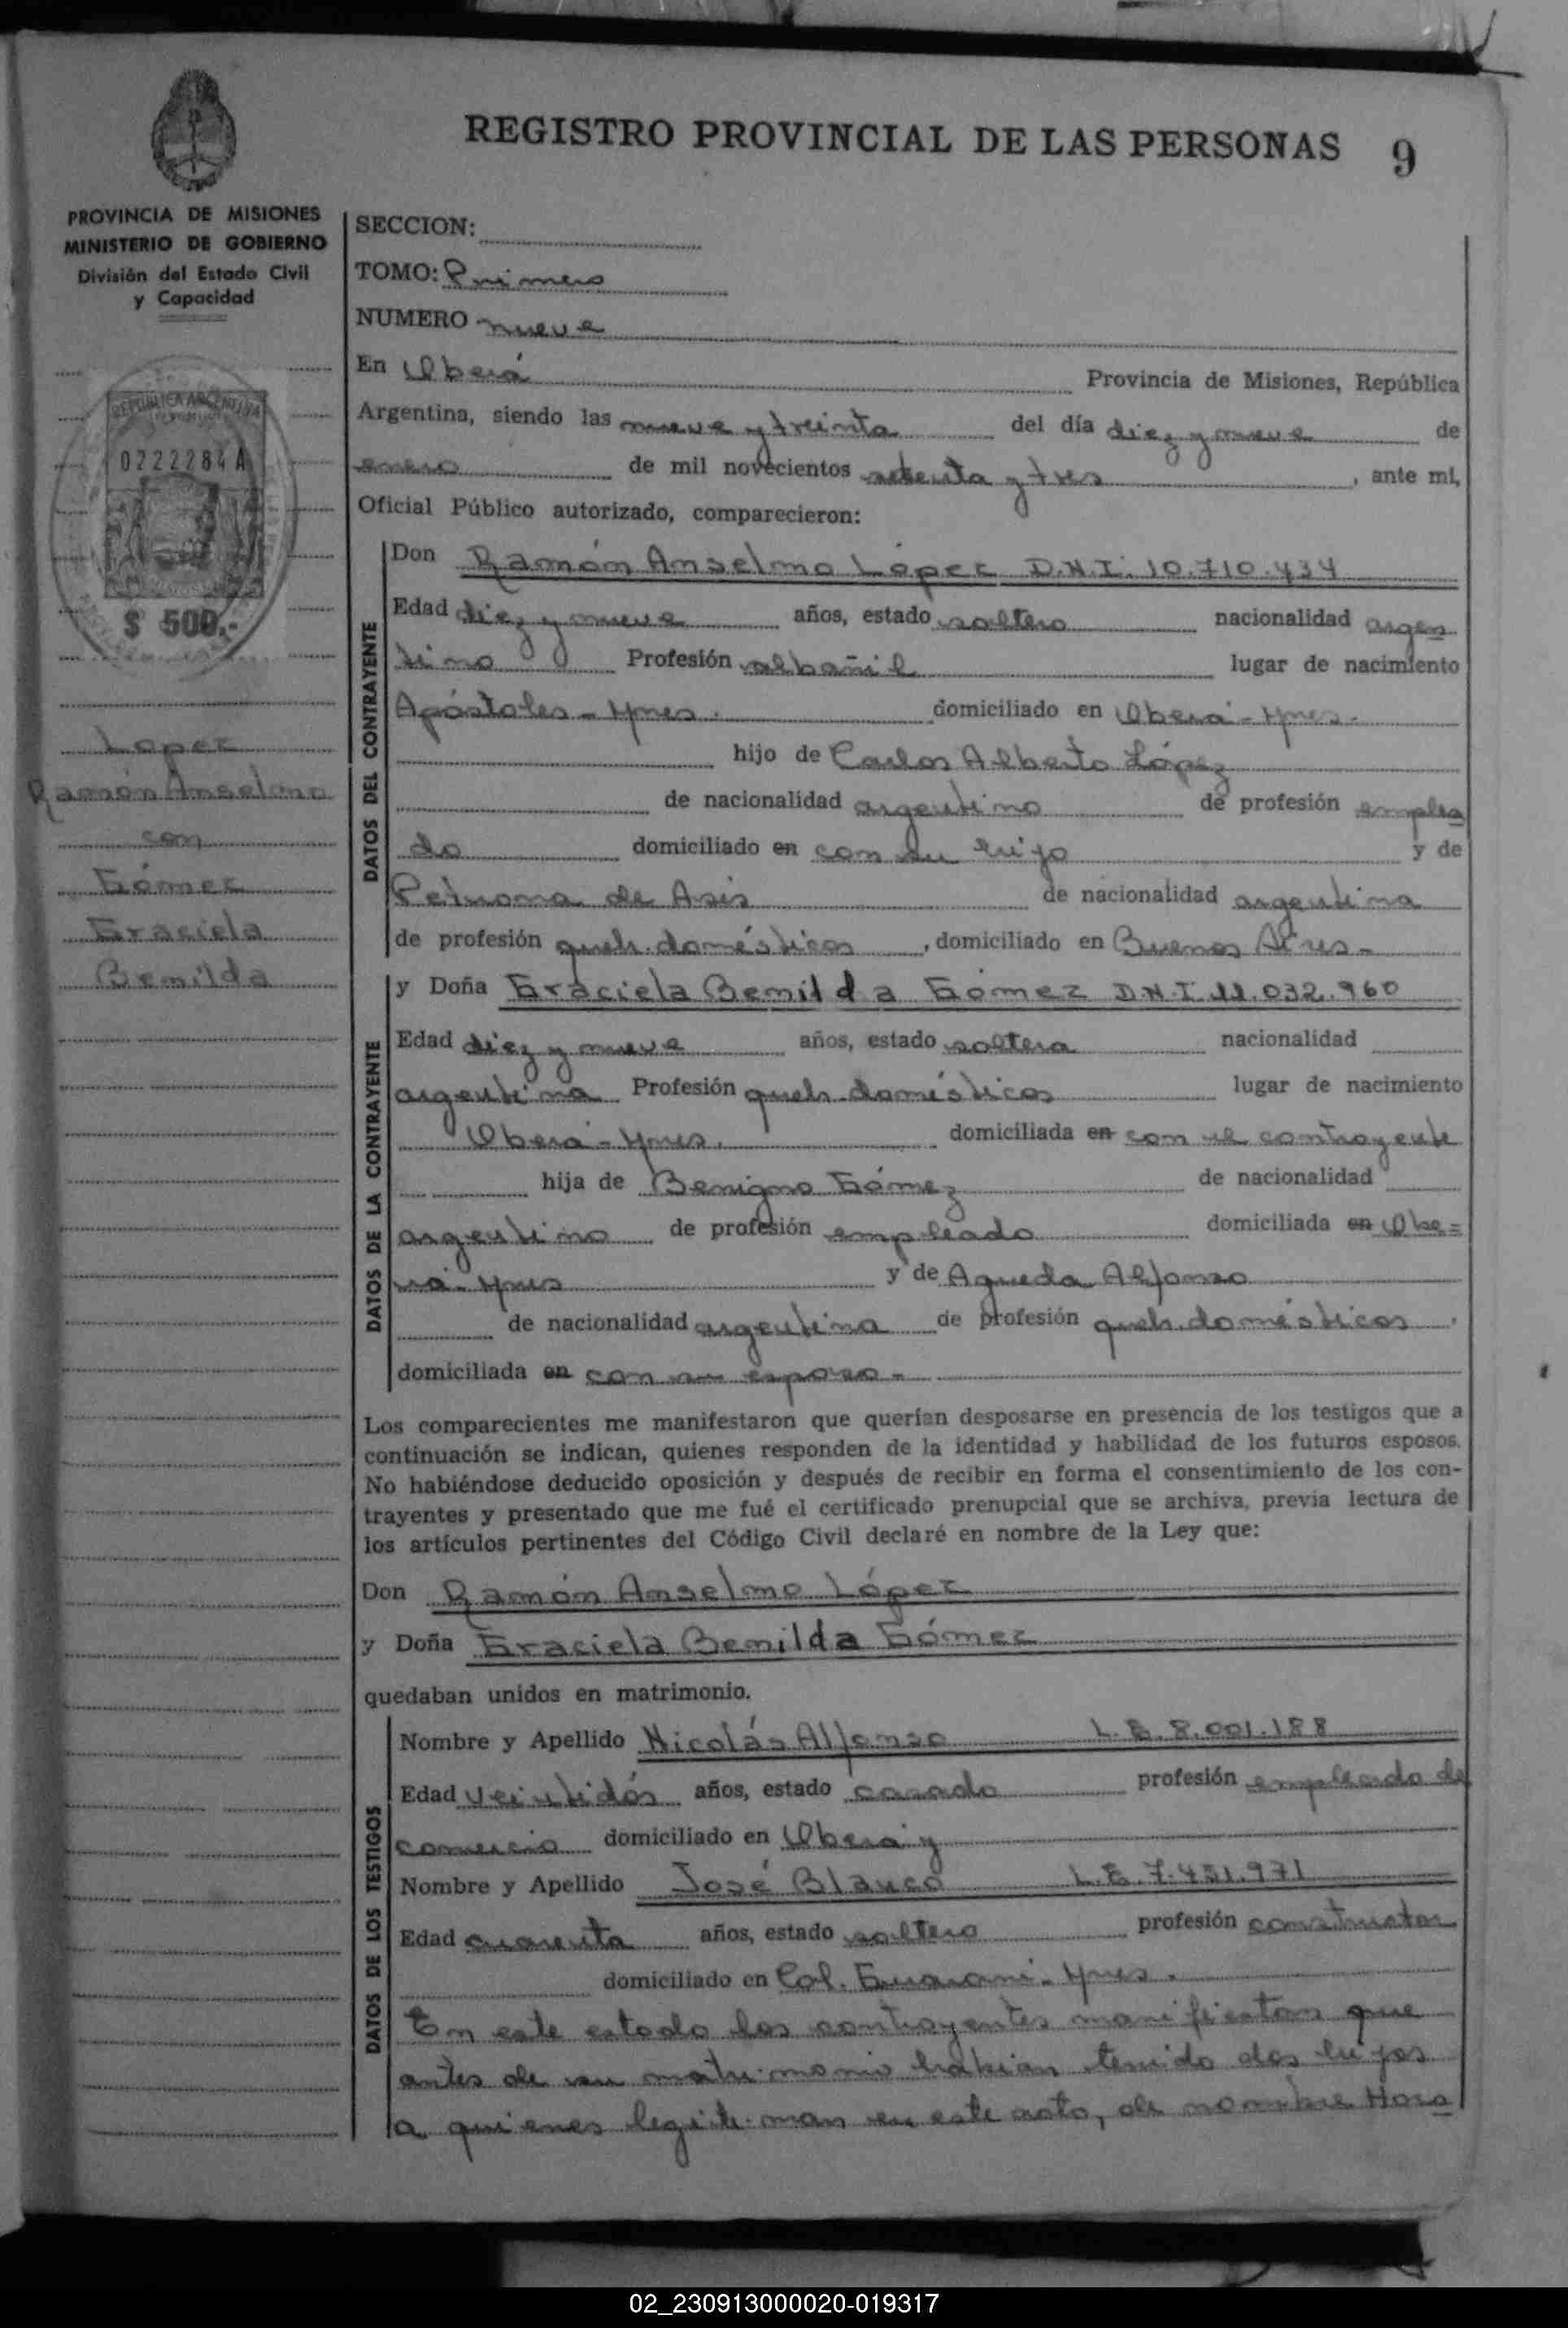 REGISTRO PROVINCIAL DE LAS PERSONAS 9
PROVINCIA DE MISIONES
MINISTERIO DE GOBIERNO
División del Estado Civil
y Capacidad
REPUBLICA ARGENTINA
0222284 A
$ 500.-
Lopez
Ramón Anselmo
con
Gómez
Graciela
Bemilda
SECCION:
TOMO: Primero
NUMERO nueve
En Oberá Provincia de Misiones, República
Argentina, siendo las nueve y treinta del día diez y nueve de
enero de mil novecientos setenta y tres, ante mi,
Oficial Público autorizado, comparecieron:
DATOS DEL CONTRAYENTE
Don Ramón Anselmo López D.N.I. 10.710.434
Edad diez y nueve años, estado soltero nacionalidad argen
tino Profesión albañil lugar de nacimiento
Apóstoles - Mnes. domiciliado en Oberá - Mnes.
hijo de Carlos Alberto López
de nacionalidad argentino de profesión emplea
do domiciliado en con su hijo y de
Petrona de Asis de nacionalidad argentina
de profesión queh. domésticos, domiciliado en Buenos Aires.-
DATOS DE LA CONTRAYENTE
y Doña Graciela Bemilda Gómez D.N.I. 11.032.960
Edad diez y nueve años, estado soltera nacionalidad
argentina Profesión queh. domésticos lugar de nacimiento
Oberá - Mnes. domiciliada en con el contrayente
hija de Benigno Gómez de nacionalidad
argentino de profesión empleado domiciliada en Obe=
rá - Mnes y de Agueda Alfonso
de nacionalidad argentina de profesión queh. domésticos.
domiciliada en con su esposo.-
Los comparecientes me manifestaron que querían desposarse en presencia de los testigos que a
continuación se indican, quienes responden de la identidad y habilidad de los futuros esposos.
No habiéndose deducido oposición y después de recibir en forma el consentimiento de los con-
trayentes y presentado que me fué el certificado prenupcial que se archiva, previa lectura de
los artículos pertinentes del Código Civil declaré en nombre de la Ley que:
Don Ramón Anselmo López
y Doña Graciela Bemilda Gómez
quedaban unidos en matrimonio.
DATOS DE LOS TESTIGOS
Nombre y Apellido Nicolás Alfonso L.E. 8.001.188
Edad veintidós años, estado casado profesión empleado de
comercio domiciliado en Oberá y
Nombre y Apellido José Blanco L.E. 7.451.971
Edad cuarenta años, estado soltero profesión constructor
domiciliado en Col. Guaraní - Mnes.
En este estado los contrayentes manifiestan que
antes de su matrimonio habían tenido dos hijos
a quienes legitiman en este acto, de nombre Hora
02_230913000020-019317